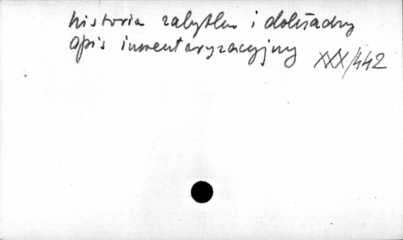 historia zabytku i dokładny
opis inwentaryzacyjny XXX/442